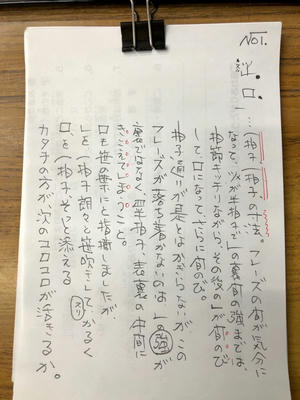 NO1.
ロ.
…(拍子)拍子の寸法。フレーズの が気分に
なって、 が半拍子、」の裏 の強までは、
拍節キッチリながら、その後の」が のび
して、ロになって、さらに のび。
拍子通りが良とはかぎらないが、この
フレーズが落ち着かないのは」の強が
裏ではなく、四半拍子、表裏の中間に
きこえてしまうこと。
ロを笹の葉にと指揮しましたが、
」を(拍子朗々と笹吹きして、かるく
メリ
ロを(拍子そっと添える
カタチの方が、次のコロコロが活きるか。